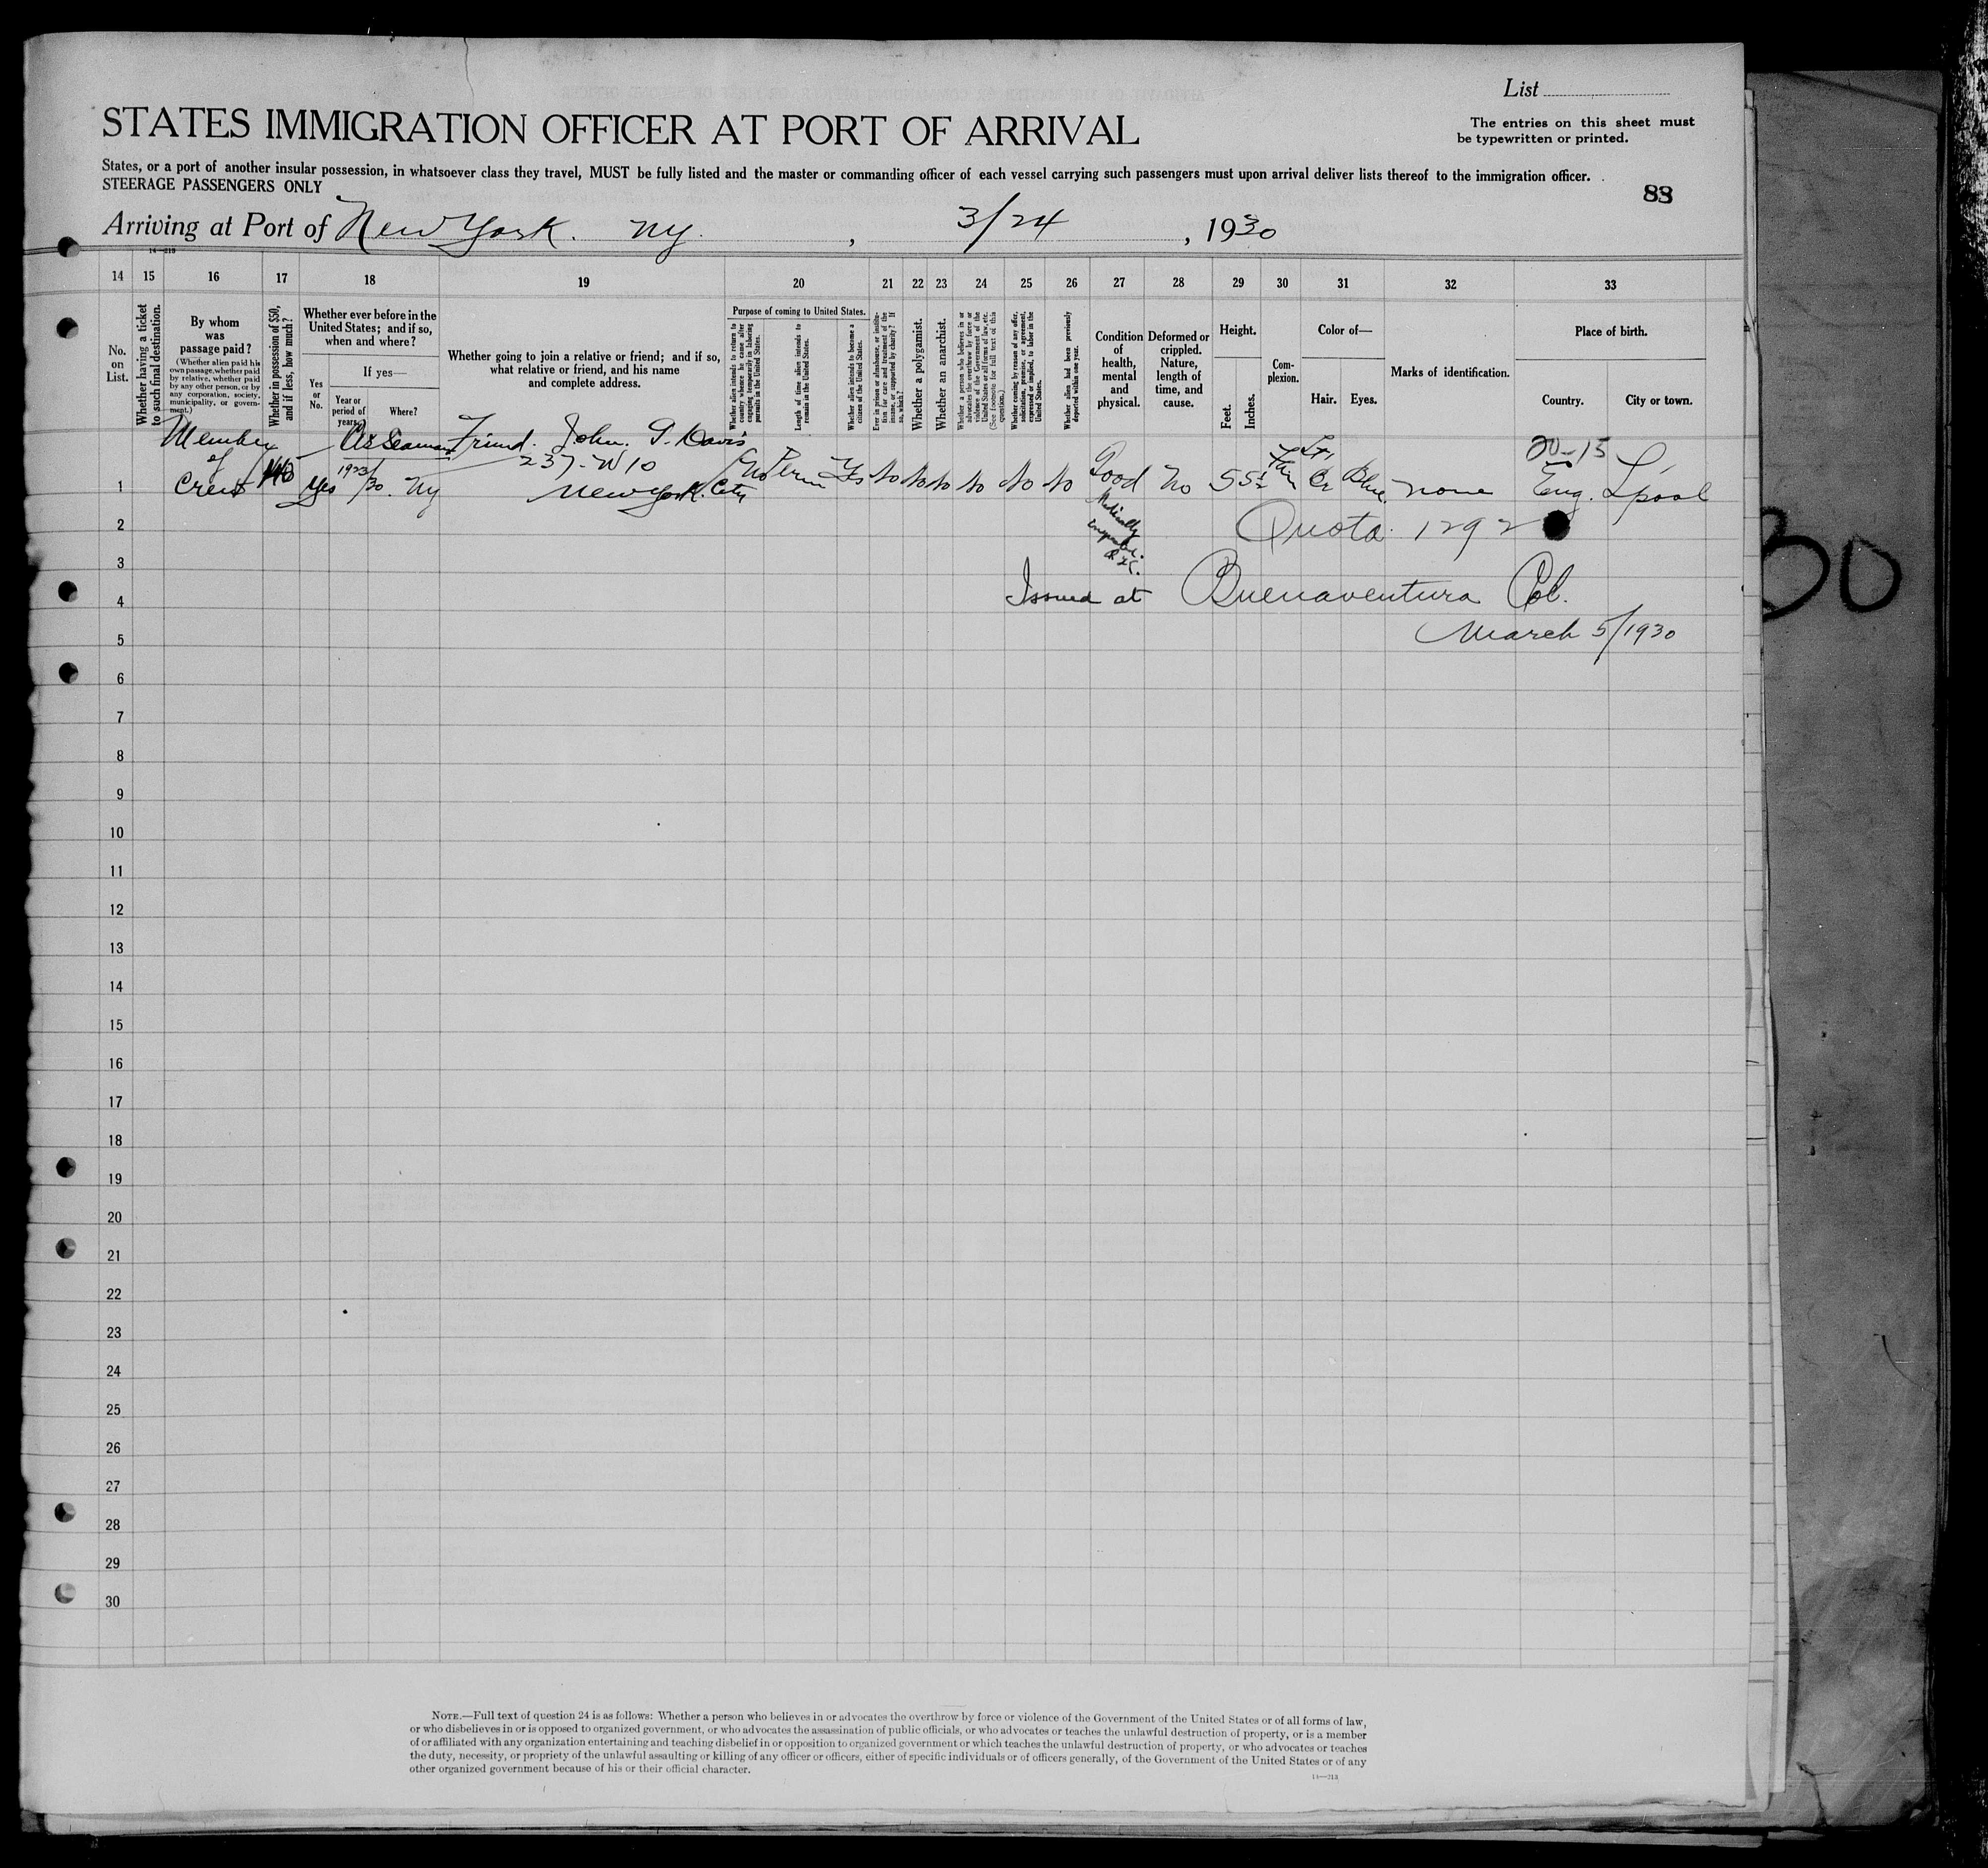 List
STATES IMMIGRATION OFFICER AT PORT OF ARRIVAL
The entries on this sheet must
be typewritten or printed.
States, or a port of another insular possession, in whatsoever class they travel, MUST be fully listed and the master or commanding officer of each vessel carrying such passengers must upon arrival deliver lists thereof to the immigration officer.
STEERAGE PASSENGERS ONLY
83
Arriving at Port of New York. Ny. , 3/24 , 1930
14—213
14 15 16 17 18 19 20 21 22 23 24 25 26 27 28 29 30 31 32 33
No.
on
List.
Whether having a ticket
to such final destination.
By whom
was
passage paid?
(Whether alien paid his
own passage, whether paid
by relative, whether paid
by any other person, or by
any corporation, society,
municipality, or govern-
ment.)
Whether in possession of $50,
and if less, how much?
Whether ever before in the
United States; and if so,
when and where?
Yes
or
No.
If yes—
Year or
period of
years.
Where?
Whether going to join a relative or friend; and if so,
what relative or friend, and his name
and complete address.
Purpose of coming to United States.
Whether alien intends to return to
country whence he came after
engaging temporarily in laboring
pursuits in the United States.
Length of time alien intends to
remain in the United States.
Whether alien intends to become a
citizen of the United States.
Ever in prison or almshouse, or institu-
tion for care and treatment of the
insane, or supported by charity? If
so, which?
Whether a polygamist.
Whether an anarchist.
Whether a person who believes in or
advocates the overthrow by force or
violence of the Government of the
United States or all forms of law, etc.
(See footnote for full text of this
question.)
Whether coming by reason of any offer,
solicitation, promise, or agreement,
expressed or implied, to labor in the
United States.
Whether alien had been previously
deported within one year.
Condition
of
health,
mental
and
physical.
Deformed or
crippled.
Nature,
length of
time, and
cause.
Height.
Feet.
Inches.
Com-
plexion.
Color of—
Hair. Eyes.
Marks of identification.
Place of birth.
Country. City or town.
Member As Seaman Friend. John. G. Davis 20-15
of 1923 237-W 10
1 Crew Yes /30. Ny New York. City No Perm Yes No No No No No No Good No 5 5½ Br Blue. none Eng. L'pool
Medically
2 Quota 1292
3
4 Issued at Buenaventura Col.
5 March 5/1930
6
7
8
9
10
11
12
13
14
15
16
17
18
19
20
21
22
23
24
25
26
27
28
29
30
30
NOTE.—Full text of question 24 is as follows: Whether a person who believes in or advocates the overthrow by force or violence of the Government of the United States or of all forms of law,
or who disbelieves in or is opposed to organized government, or who advocates the assassination of public officials, or who advocates or teaches the unlawful destruction of property, or is a member
of or affiliated with any organization entertaining and teaching disbelief in or opposition to organized government or which teaches the unlawful destruction of property, or who advocates or teaches
the duty, necessity, or propriety of the unlawful assaulting or killing of any officer or officers, either of specific individuals or of officers generally, of the Government of the United States or of any
other organized government because of his or their official character.
14—213